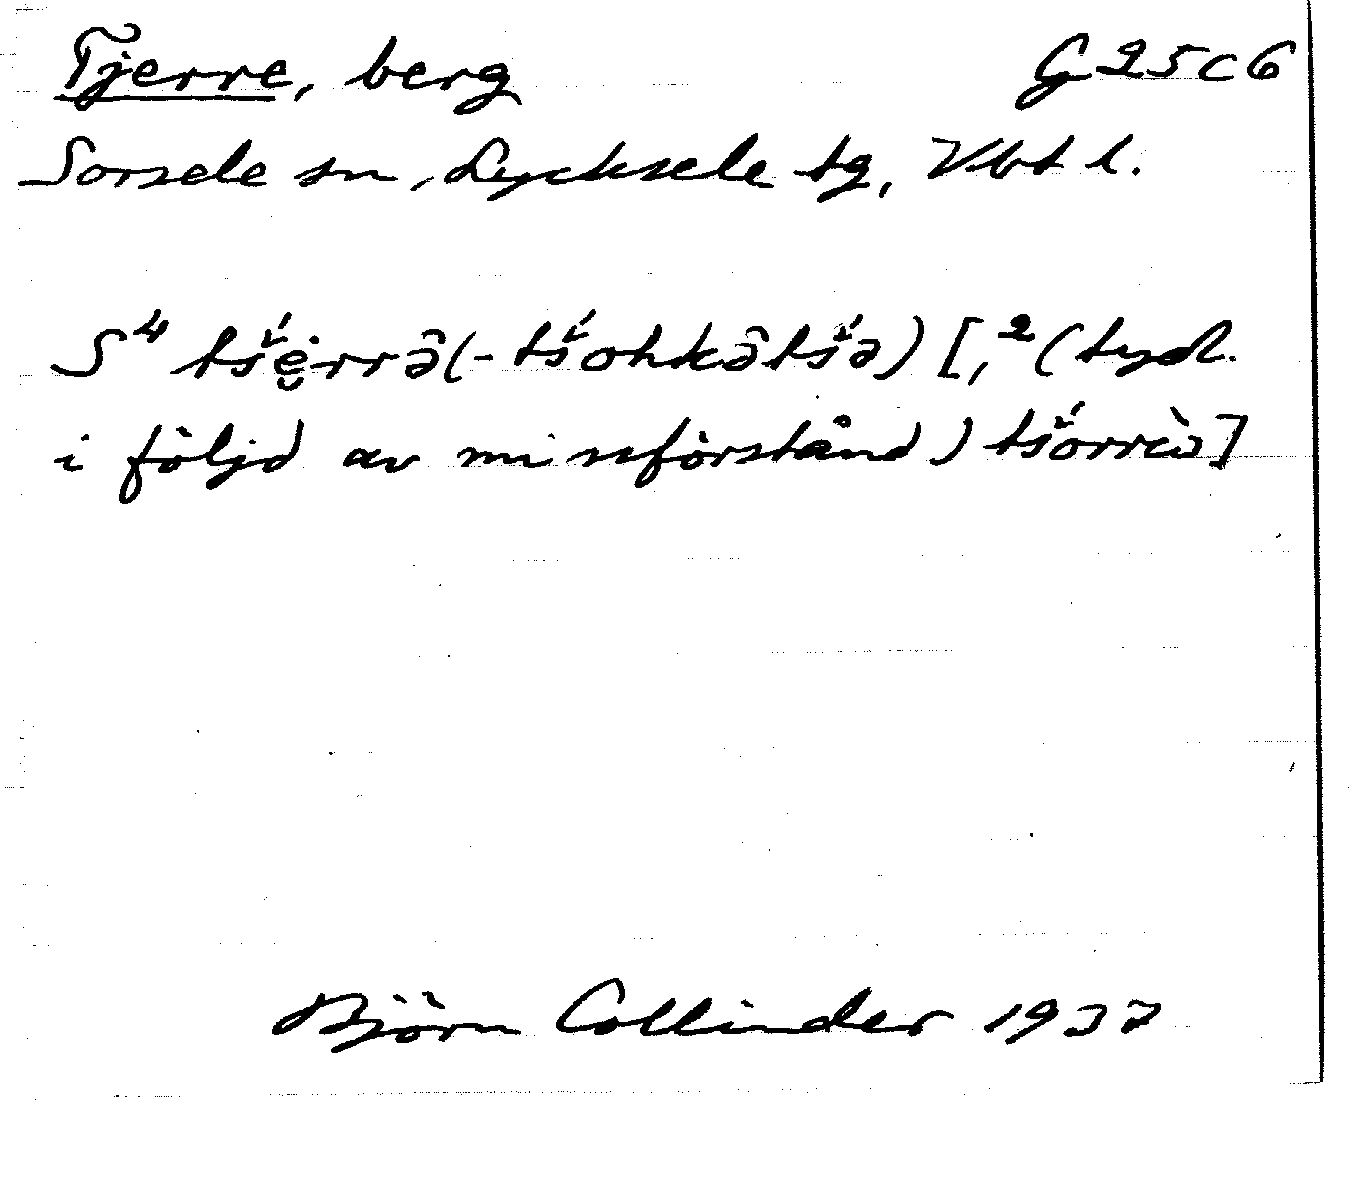 Tjerre, berg G 25 c 6
Sorsele sn, Lycksele tg, Vbt l.
S⁴ tš́ė̮rrə̂(-tš́ohkə̂tš́ə) [,² (tyd.
i följd av missförstånd) tš́orrɛ̀ɔ]
Björn Collinder 1937